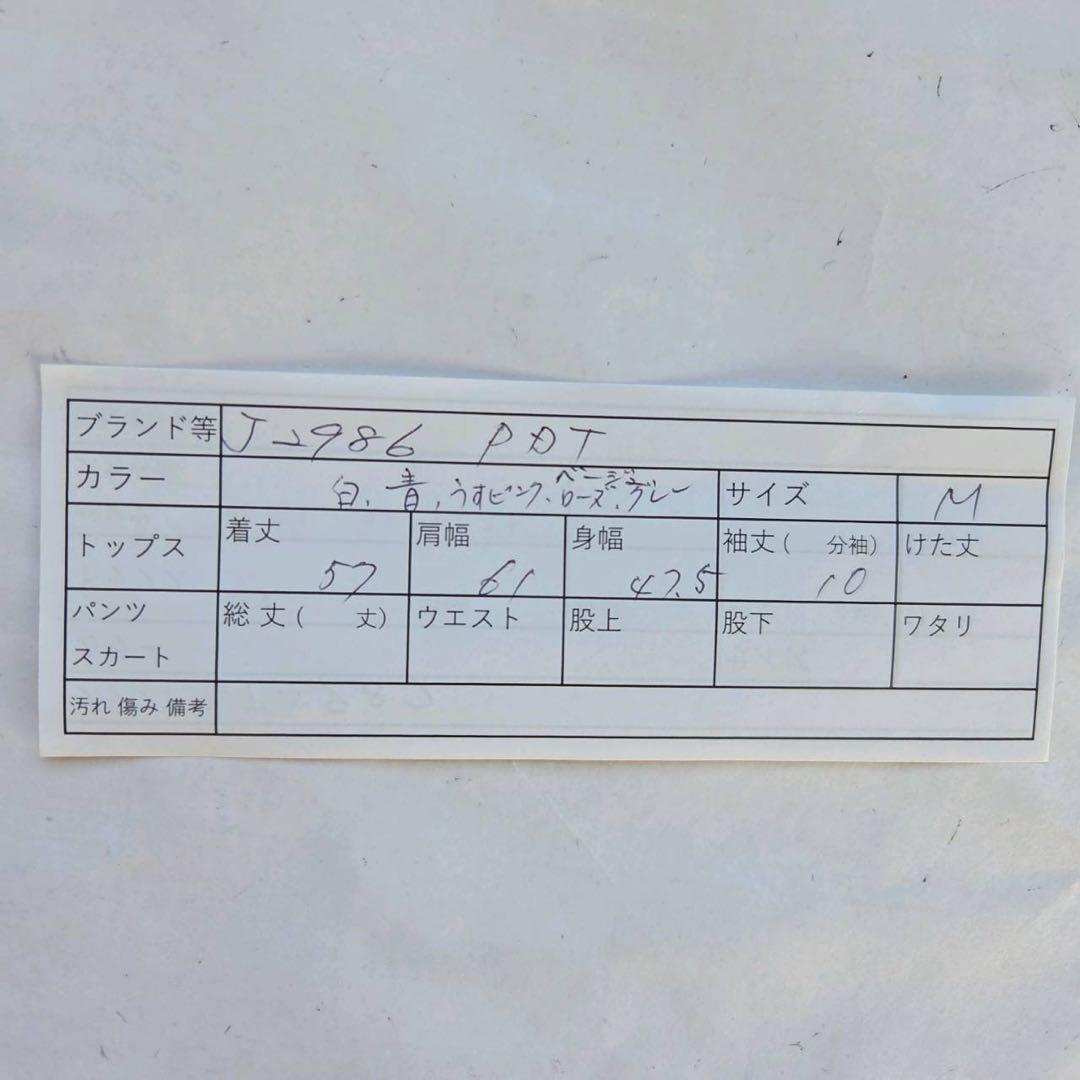 ブランド等 J-2986 PDT
カラー 白、青、うすピンク、ベージュ、ローズ、グレー サイズ M
トップス 着丈 57 肩幅 61 身幅 47.5 袖丈( 分袖) 10 けた丈
パンツ スカート 総丈( 丈) ウエスト 股上 股下 ワタリ
汚れ 傷み 備考